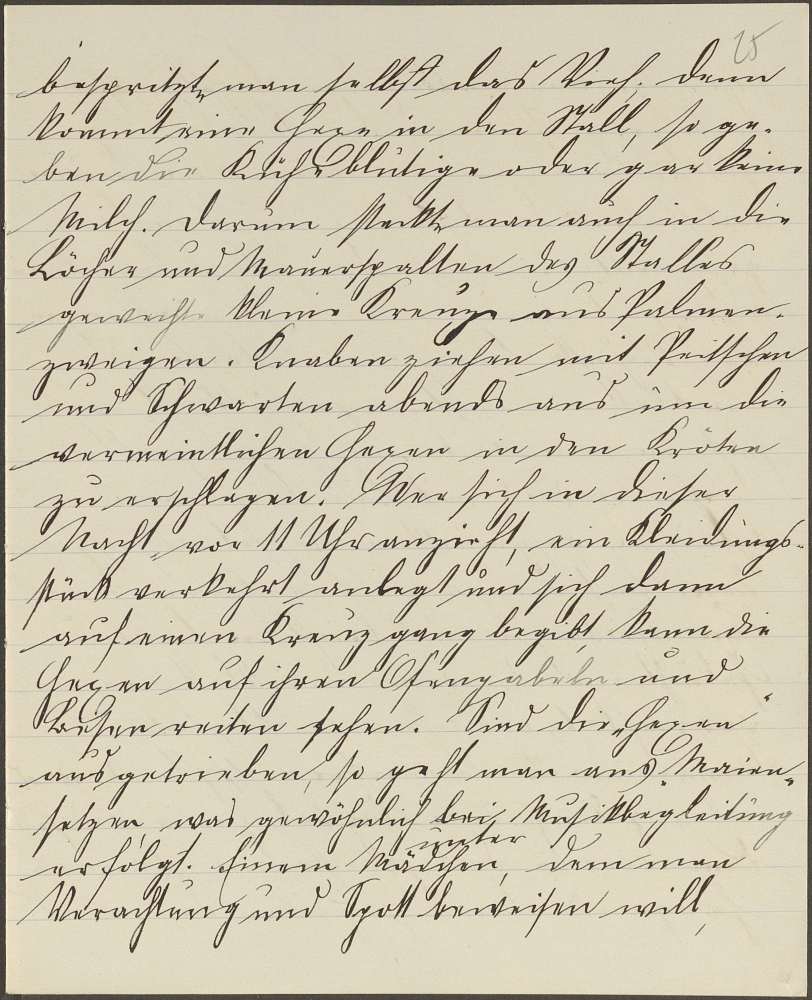 25
bespritzt man selbst das Vieh. denn
kommt eine Hexe in den Stall, so ge-
ben die Kühe blutige oder gar keine
Milch. Darum steckt man auch in die
Löcher und Mauerspalten des Stalles
geweihte kleine Kreuze aus Palmen-
zweigen. Knaben ziehen mit Peitschen
und Schwarten abends aus um die
vermeintlichen Hexen in den Kröten
zu erschlagen. Wer sich in dieser
Nacht vor 11 Uhr anzieht, ein Kleidungs-
stück verkehrt anlegt und sich dann
auf einen Kreuzgang begibt, kann die
Hexen auf ihren Ofengabeln und
Besen reiten sehen. Sind die „Hexen“
ausgetrieben, so geht man ans „Maien-
setzen, was gewöhnlich bei Musikbegleitung
erfolgt. Einem Mädchen, dem man
unter
Verachtung und Spott beweisen will,